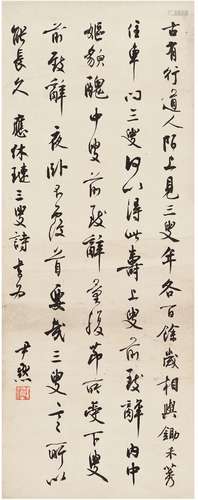 古有行道人陌上見三叟年各百餘歲相與鋤禾莠
住車問三叟何以得此壽上叟前致辭內中
嫗貌醜中叟前致辭量腹節所受下叟
前致辭夜臥不覆首要哉三叟言所以
能長久 應休璉三叟詩
尹默